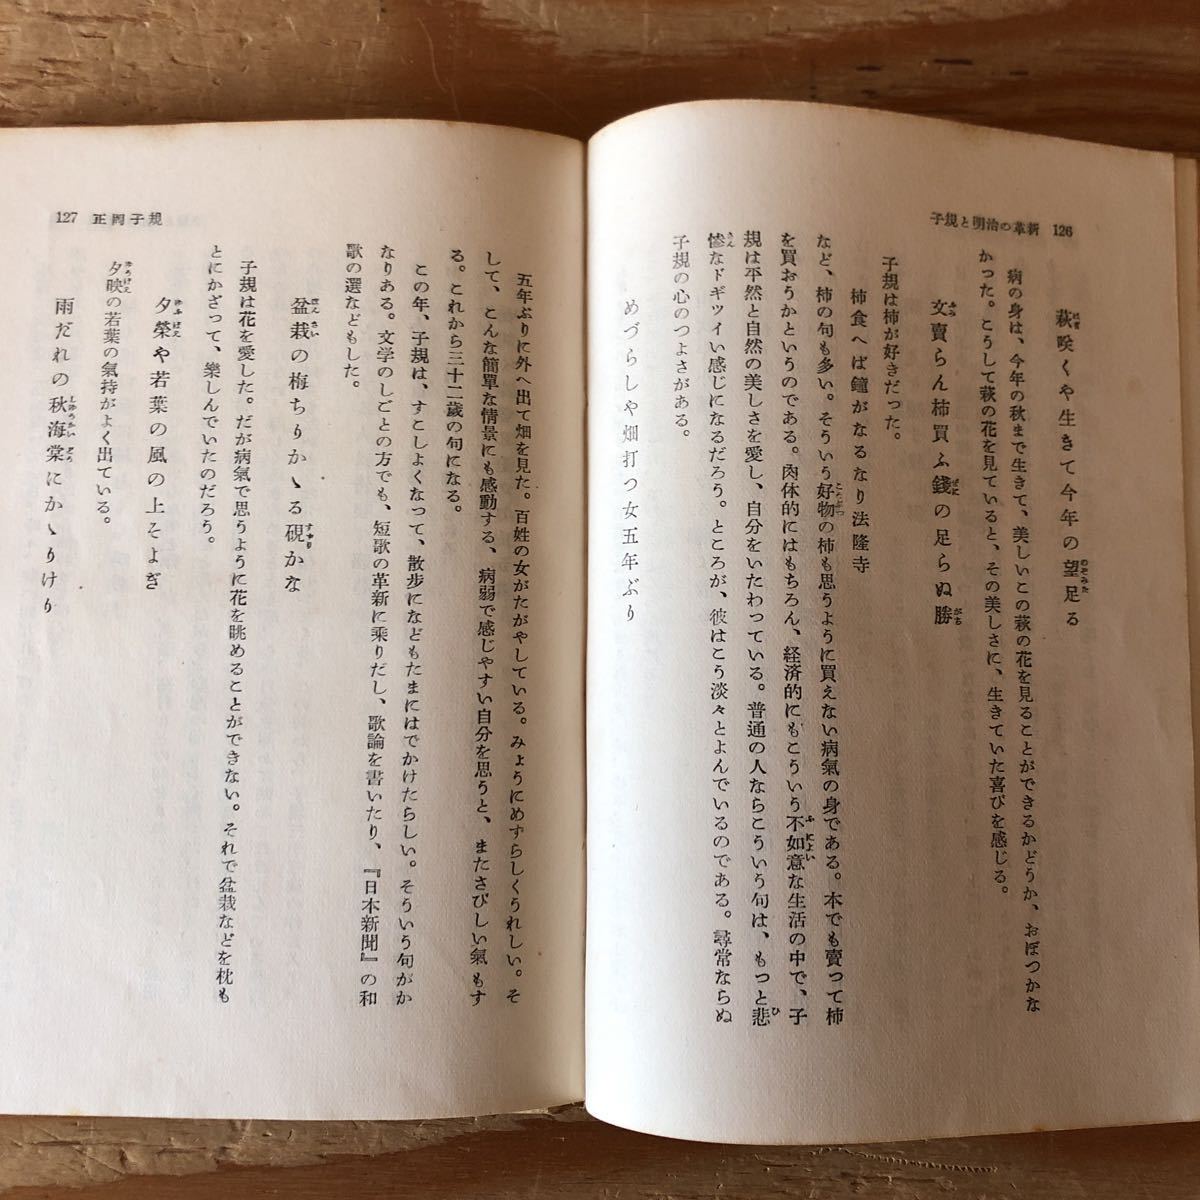 子規と明治の革新 126
萩咲くや生きて今年の望足る
病の身は、今年の秋まで生きて、美しいこの萩の花を見ることができるかどうか、おぼつかな
かった。こうして萩の花を見ていると、その美しさに、生きていた喜びを感じる。
文賣らん柿買ふ錢の足らぬ勝
子規は柿が好きだった。
柿食へば鐘がなるなり法隆寺
など、柿の句も多い。そういう好物の柿も思うように買えない病氣の身である。本でも賣って柿
を買おうかというのである。肉体的にはもちろん、経済的にもこういう不如意な生活の中で、子
規は平然と自然の美しさを愛し、自分をいたわっている。普通の人ならこういう句は、もっと悲
惨なドギツイい感じになるだろう。ところが、彼はこう淡々とよんでいるのである。尋常ならぬ
子規の心のつよさがある。
めづらしや畑打つ女五年ぶり
127 正岡子規
五年ぶりに外へ出て畑を見た。百姓の女がたがやしている。みょうにめずらしくうれしい。そ
して、こんな簡單な情景にも感動する、病弱で感じやすい自分を思うと、またさびしい氣もす
る。これから三十二歳の句になる。
この年、子規は、すこしよくなって、散歩になどもたまにはでかけたらしい。そういう句がか
なりある。文学のしごとの方でも、短歌の革新に乘りだし、歌論を書いたり、『日本新聞』の和
歌の選などもした。
盆栽の梅ちりかゝる硯かな
子規は花を愛した。だが病氣で思うように花を眺めることができない。それで盆栽などを枕も
とにかざって、樂しんでいたのだろう。
夕榮や若葉の風の上そよぎ
夕映の若葉の氣持がよく出ている。
雨だれの秋海棠にかゝりけり